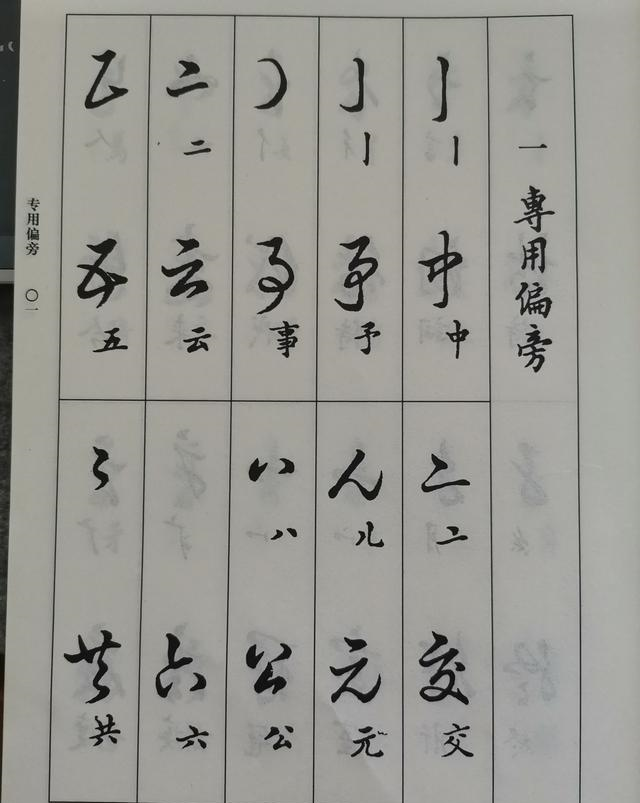 一 專用偏旁
丨
丨
中
中
亅
丨
予
予
事
事
二
二
云
云
五
五
亠
亠
交
交
儿
儿
元
元
八
八
公
公
六
六
共
共
专用偏旁 〇一